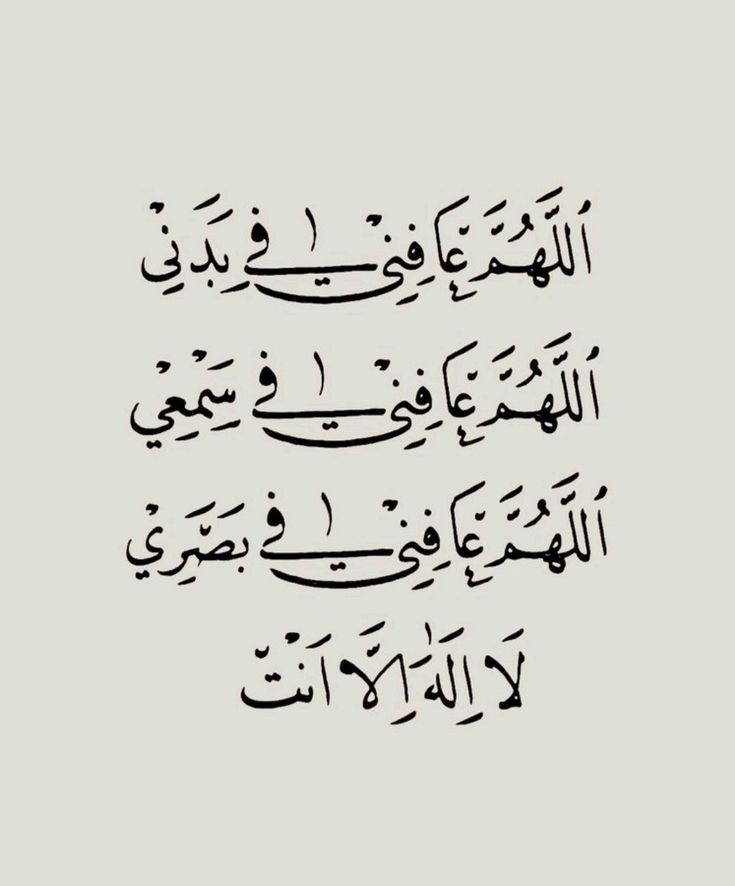 اَللَّهُمَّ عَافِنِيْ فِيْ بَدَنِيْ
اَللَّهُمَّ عَافِنِيْ فِيْ سَمْعِيْ
اَللَّهُمَّ عَافِنِيْ فِيْ بَصَرِيْ
لَا اِلٰهَ اِلَّا اَنْتَ